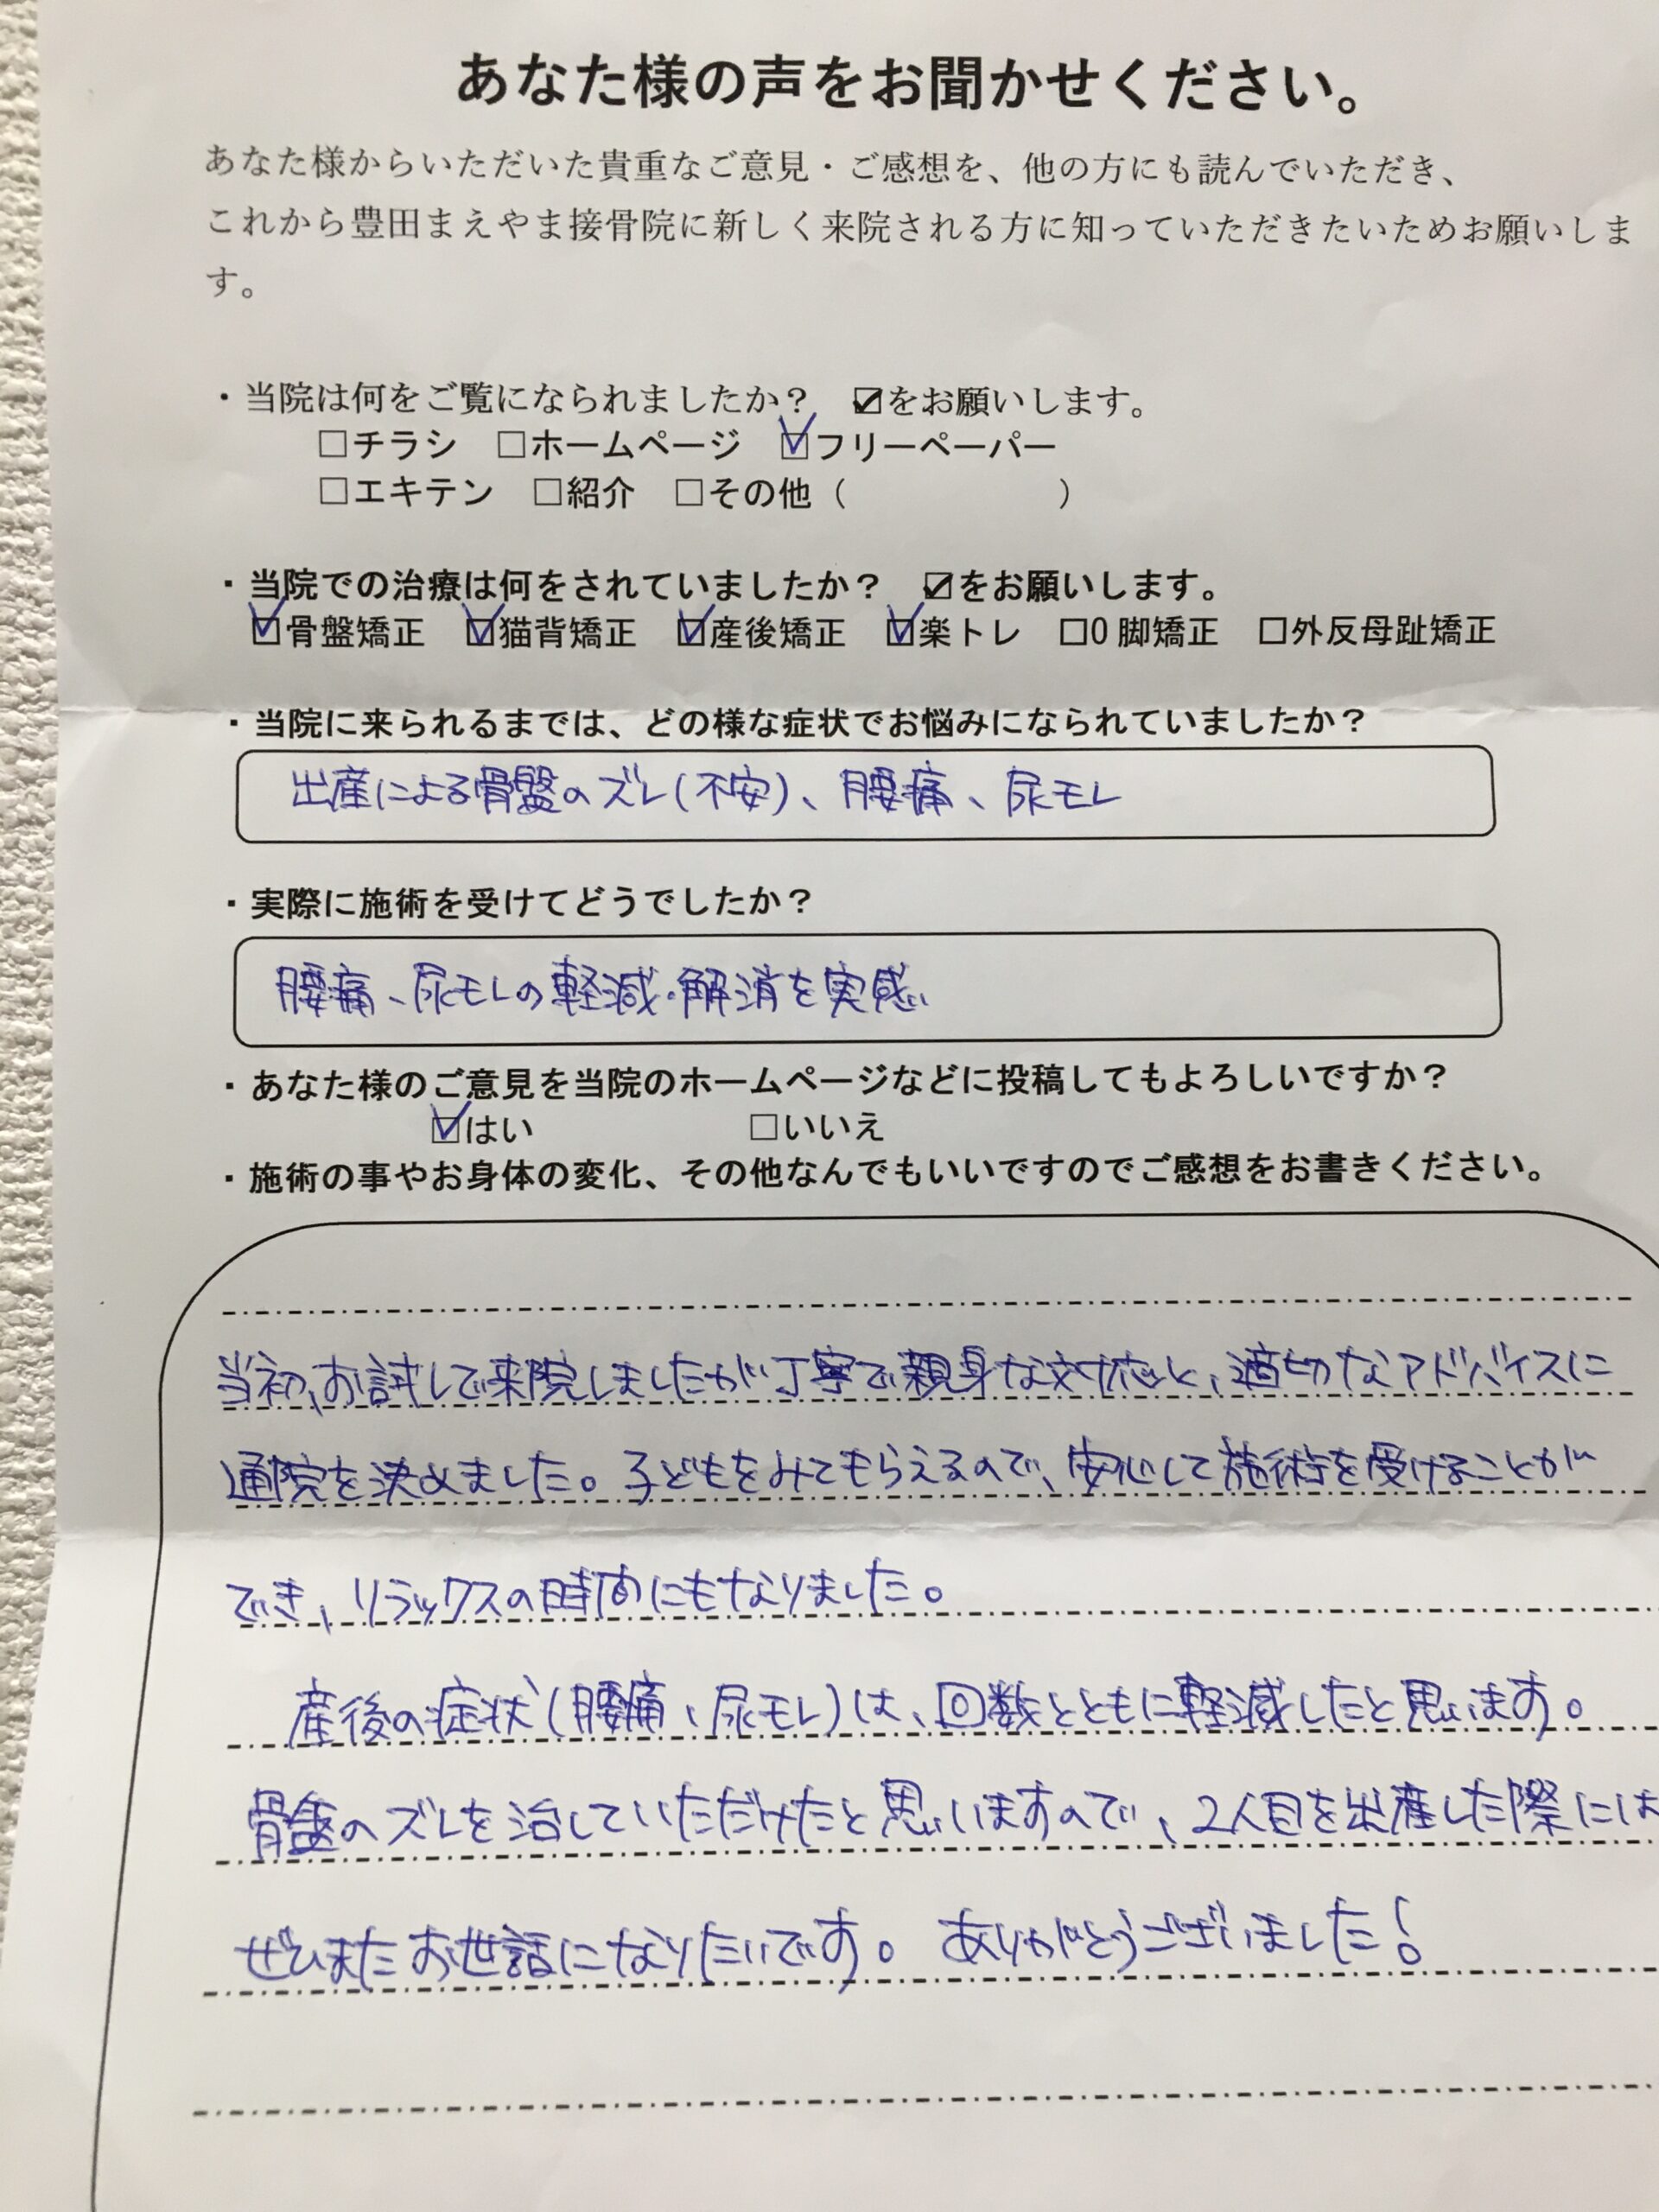 あなた様の声をお聞かせください。
あなた様からいただいた貴重なご意見・ご感想を、他の方にも読んでいただき、
これから豊田まえやま接骨院に新しく来院される方に知っていただきたいためお願いしま
す。
・当院は何をご覧になられましたか？ ☑をお願いします。
□チラシ □ホームページ ☑フリーペーパー
□エキテン □紹介 □その他（ ）
・当院での治療は何をされていましたか？ ☑をお願いします。
☑骨盤矯正 ☑猫背矯正 ☑産後矯正 ☑楽トレ □O脚矯正 □外反母趾矯正
・当院に来られるまでは、どの様な症状でお悩みになられていましたか？
出産による骨盤のズレ（不安）、腰痛、尿モレ
・実際に施術を受けてどうでしたか？
腰痛、尿モレの軽減・解消を実感
・あなた様のご意見を当院のホームページなどに投稿してもよろしいですか？
☑はい □いいえ
・施術の事やお身体の変化、その他なんでもいいですのでご感想をお書きください。
当初、お試しで来院しましたが丁寧で親身な対応と、適切なアドバイスに
通院を決めました。子どもをみてもらえるので、安心して施術を受けることが
でき、リラックスの時間にもなりました。
産後の症状（腰痛、尿モレ）は、回数とともに軽減したと思います。
骨盤のズレを治していただけたと思いますので、2人目を出産した際には
ぜひまたお世話になりたいです。ありがとうございました！